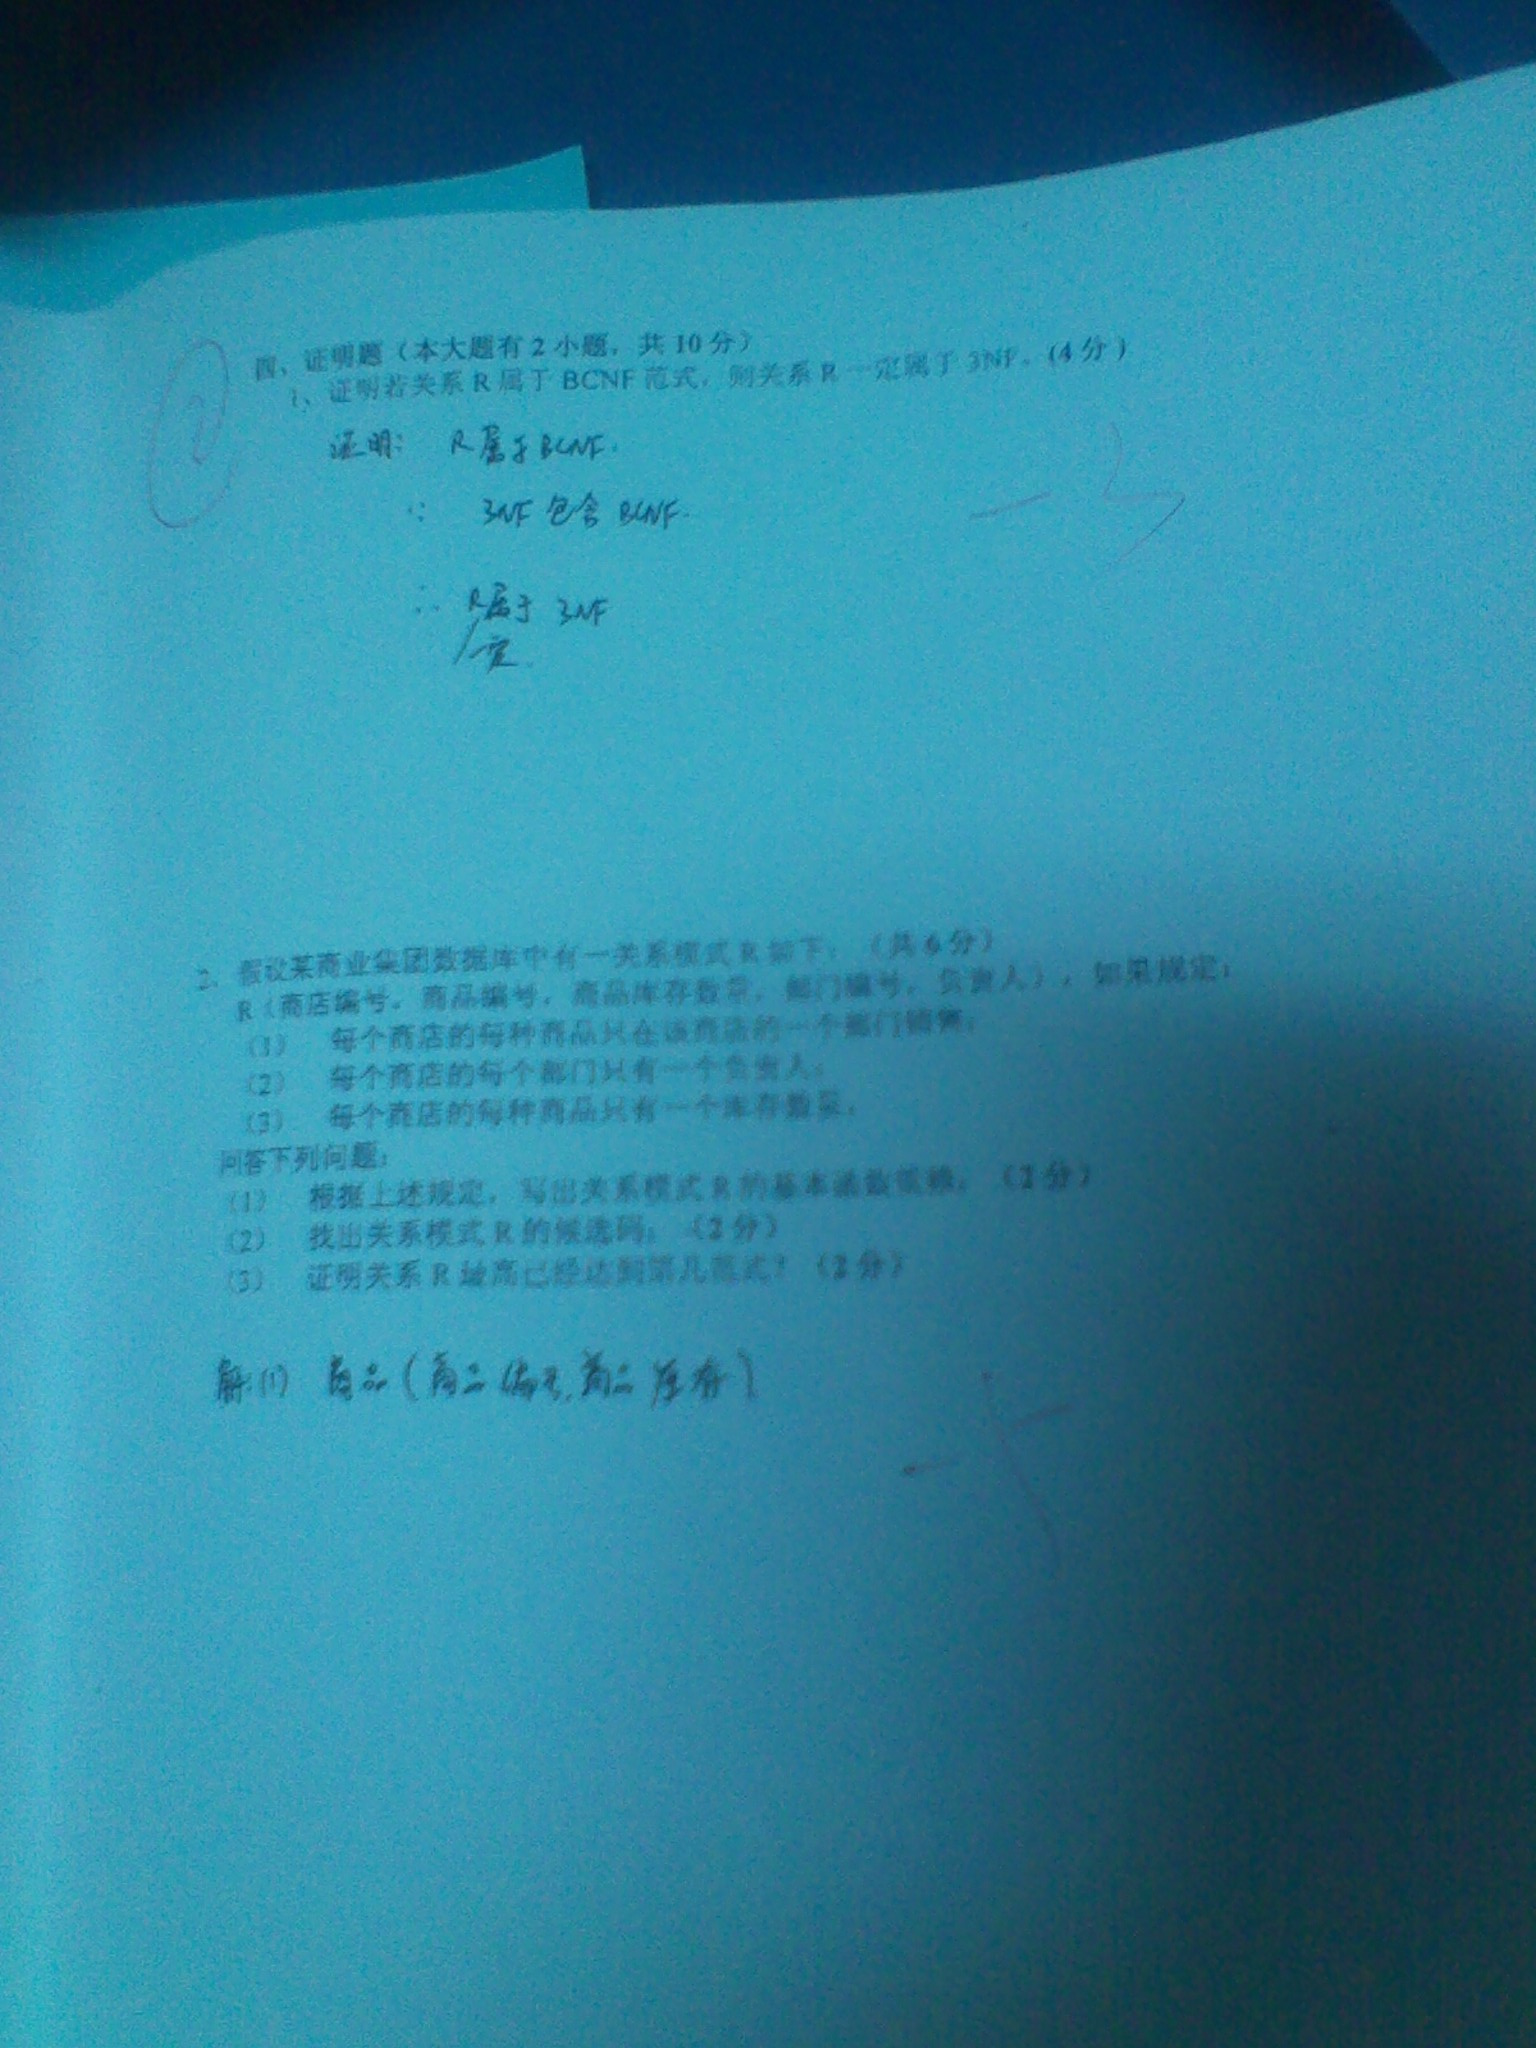 四、证明题（本大题有 2 小题，共 10 分）
1、证明若关系 R 属于 BCNF 范式，则关系 R 一定属于 3NF。（4 分）
证明： R属于BCNF.
∵ 3NF 包含 BCNF.
∴ R属于 3NF
一定
-3
2、假设某商业集团数据库中有一关系模式 R 如下：（共 6 分）
R（商店编号，商品编号，商品库存数量，部门编号，负责人），如果规定：
（1） 每个商店的每种商品只在该商店的一个部门销售；
（2） 每个商店的每个部门只有一个负责人；
（3） 每个商店的每种商品只有一个库存数量。
回答下列问题：
（1） 根据上述规定，写出关系模式 R 的基本函数依赖；（2 分）
（2） 找出关系模式 R 的候选码；（2 分）
（3） 证明关系 R 最高已经达到第几范式？（2 分）
解:(1) 商品(商品编号,商品库存)